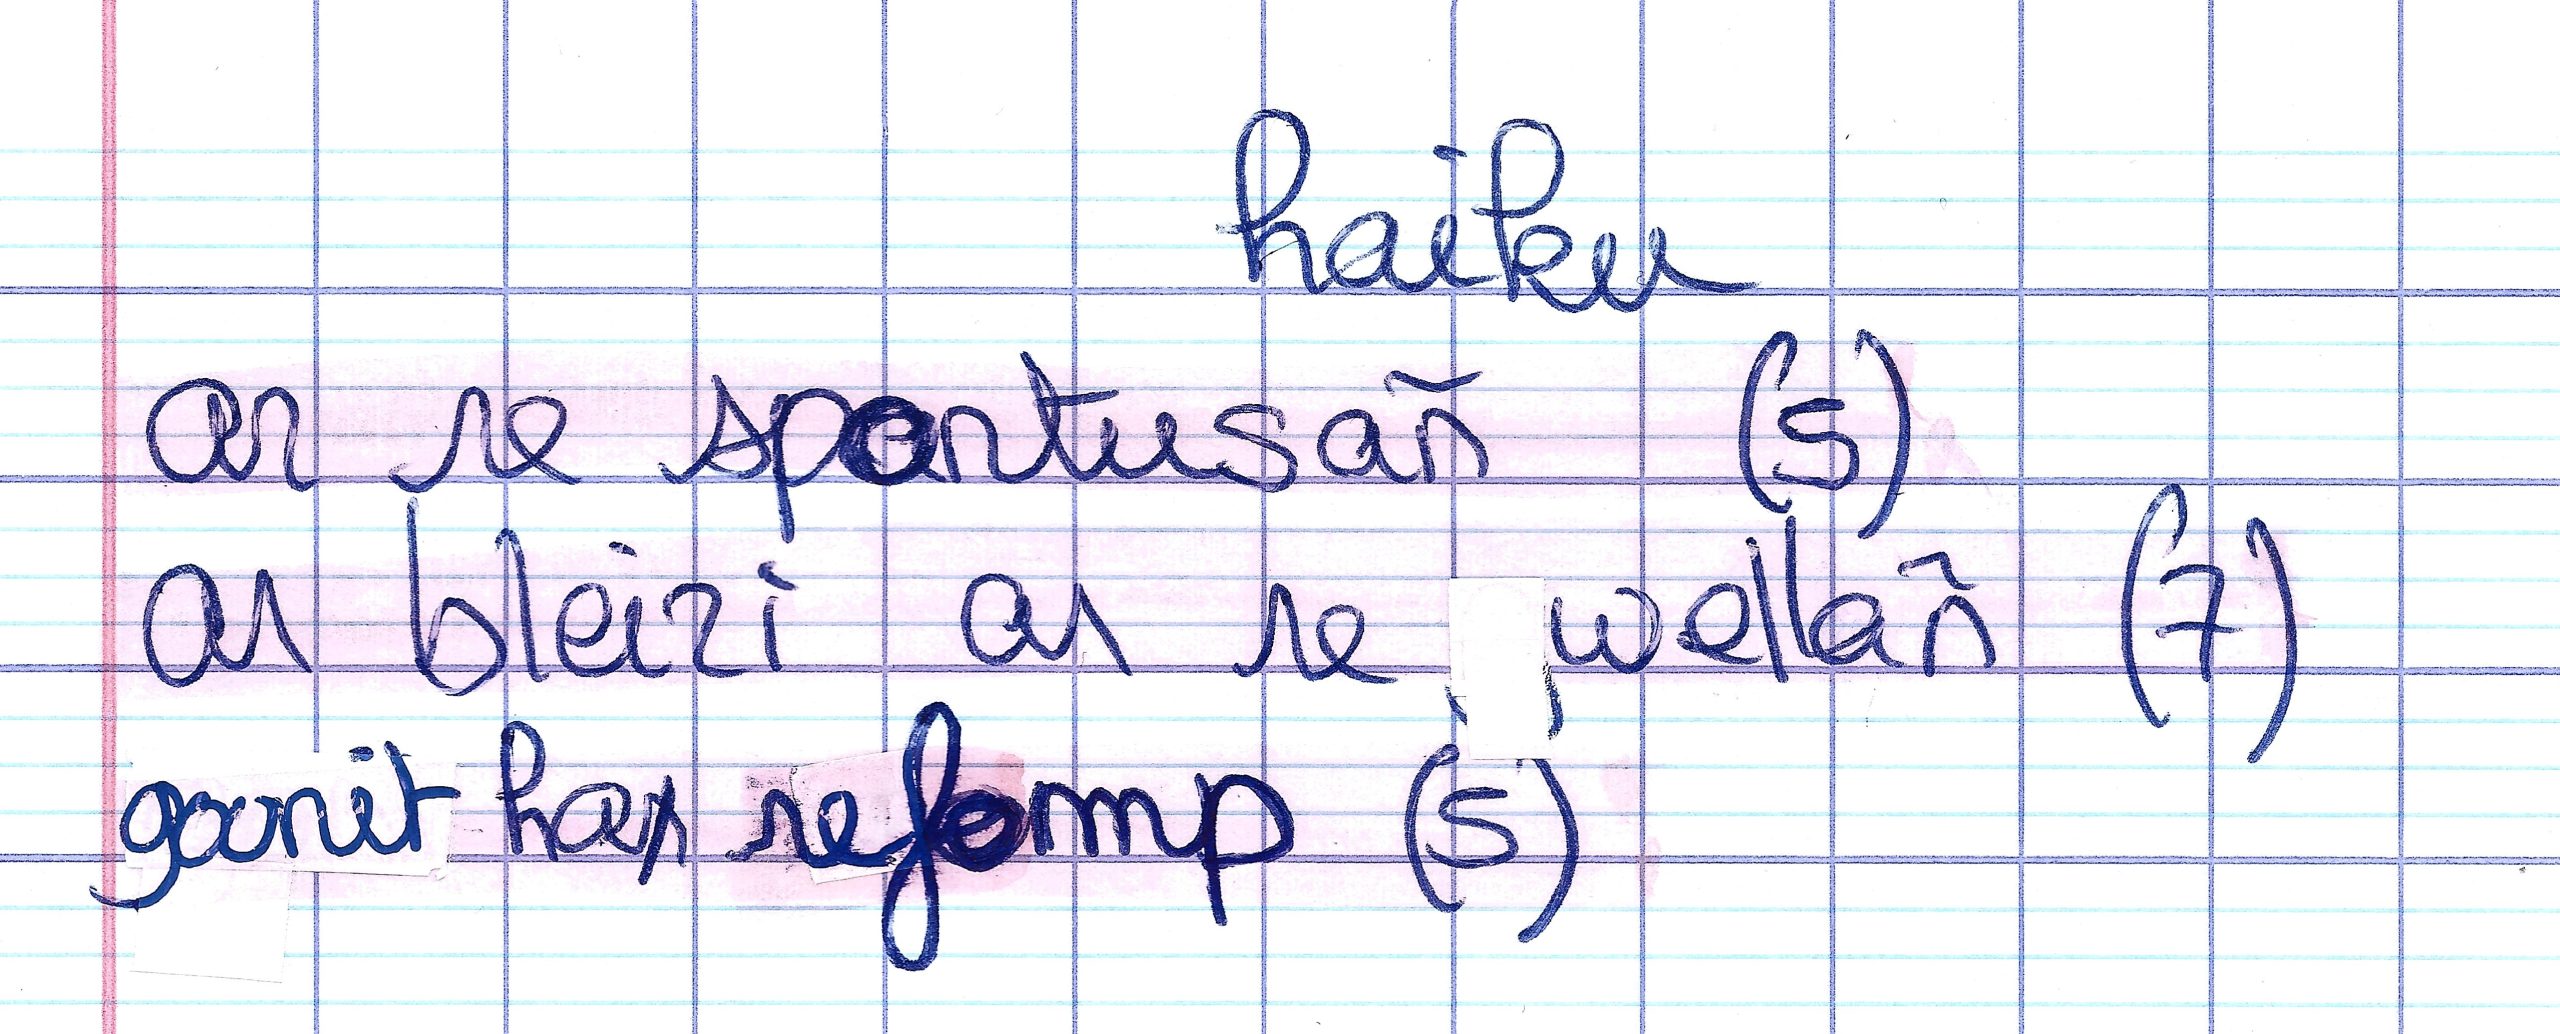 haiku
ar re spontusañ (5)
ar bleizi ar re wellañ (7)
gounit hag refomp (5)